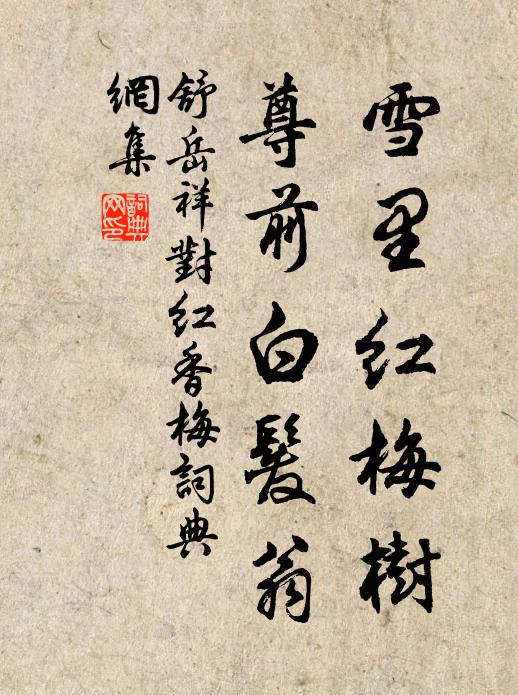 雪里红梅樹
尊前白髮翁
舒岳祥對红香梅詞典
網集
詞典
网印